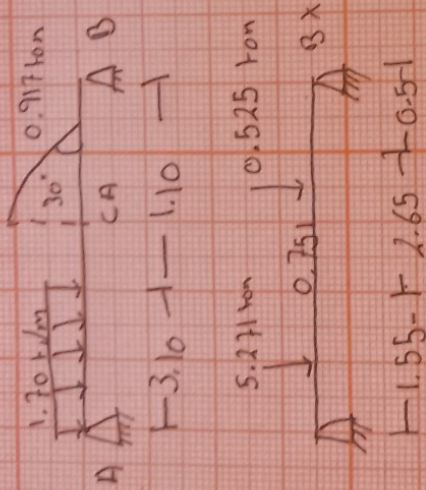 1.70 t/m 0.917 ton
30°
A CA B
3.10 1.10
5.271 ton 0.525 ton
0.751 B x
1.55 2.65 0.5